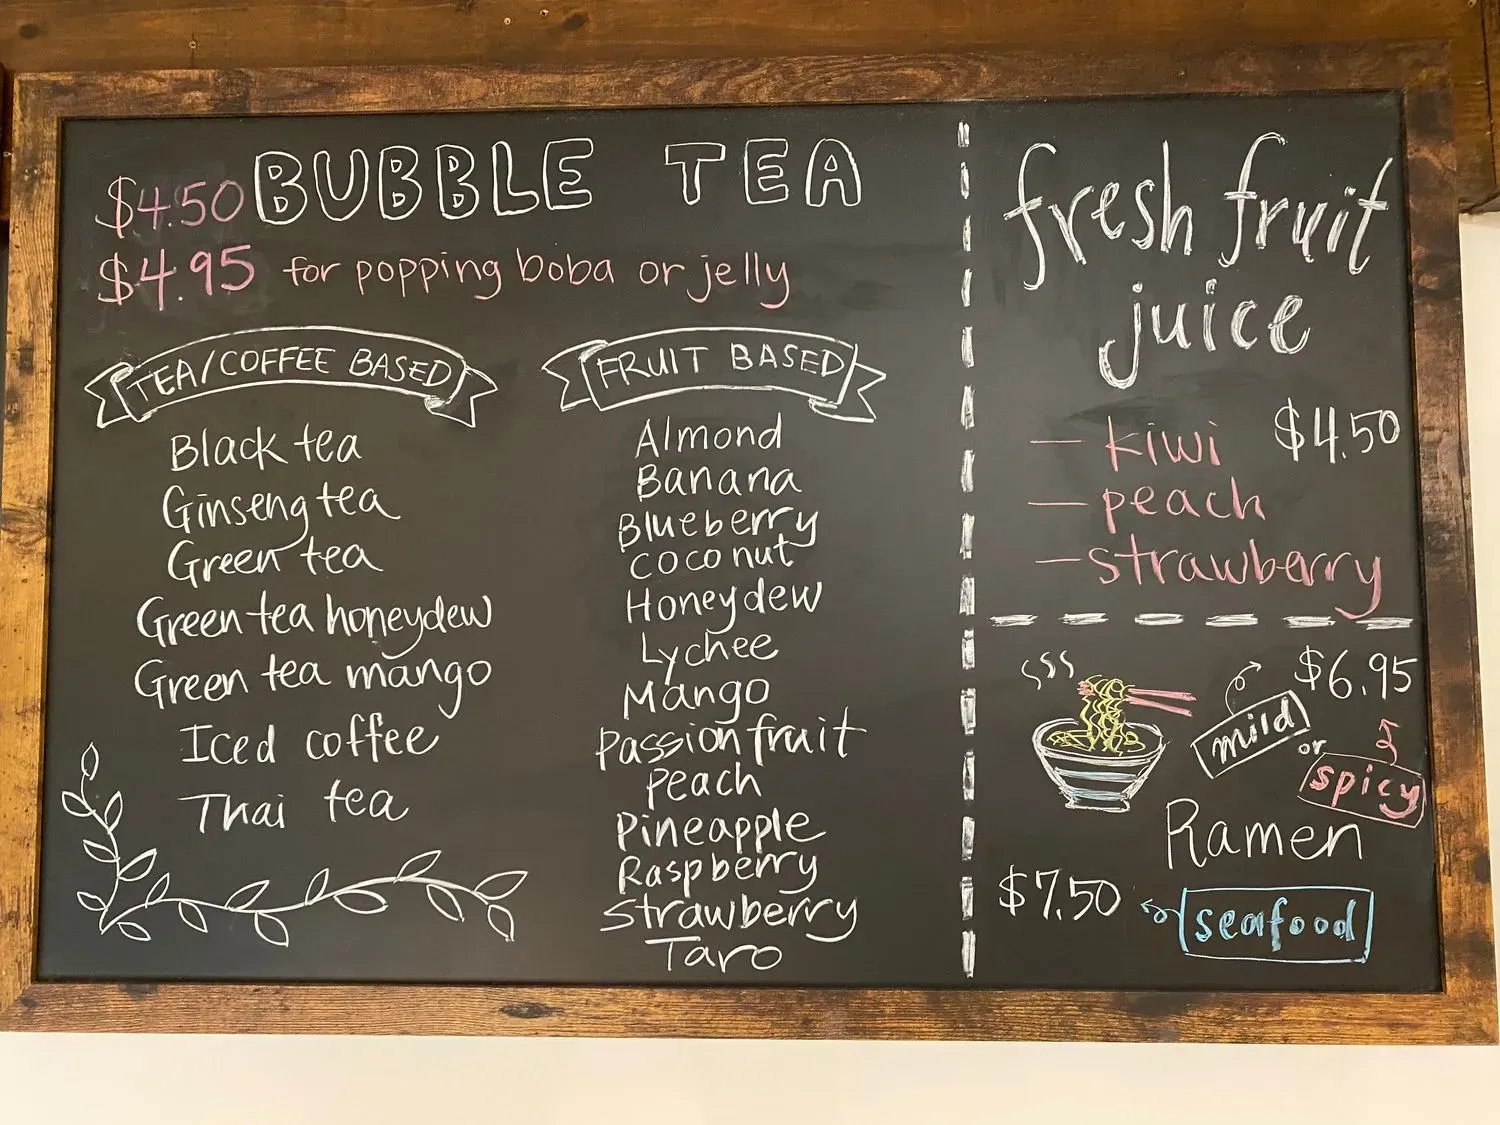 $4.50 BUBBLE TEA
$4.95 for popping boba or jelly
TEA/COFFEE BASED
Black tea
Ginseng tea
Green tea
Green tea honeydew
Green tea mango
Iced coffee
Thai tea
FRUIT BASED
Almond
Banana
Blueberry
coconut
Honeydew
Lychee
Mango
Passionfruit
Peach
Pineapple
Raspberry
Strawberry
Taro
fresh fruit
juice
— kiwi $4.50
— peach
— strawberry
$6.95
mild
or
spicy
Ramen
$7.50 seafood